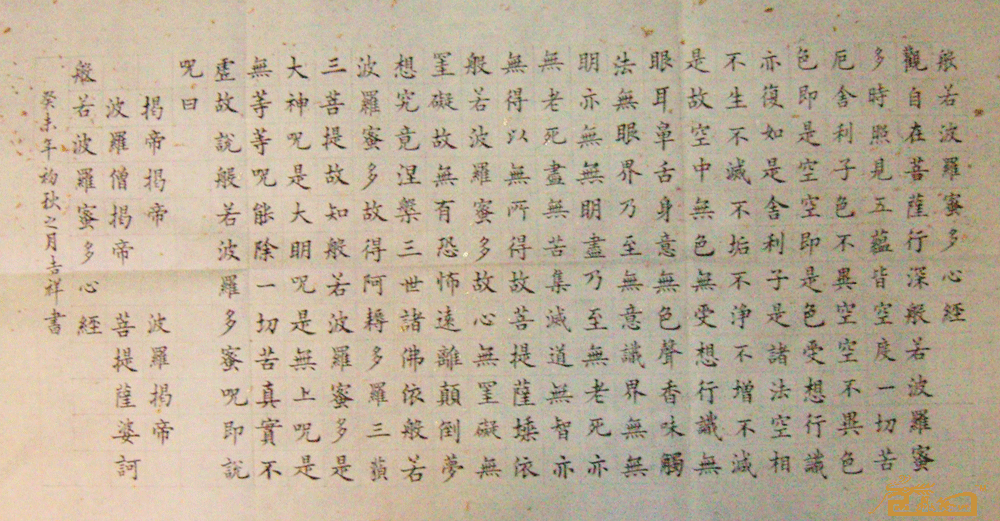 般若波羅蜜多心經
觀自在菩薩行深般若波羅蜜
多時照見五蘊皆空度一切苦
厄舍利子色不異空空不異色
色即是空空即是色受想行識
亦復如是舍利子是諸法空相
不生不滅不垢不淨不增不減
是故空中無色無受想行識無
眼耳鼻舌身意無色聲香味觸
法無眼界乃至無意識界無無
明亦無無明盡乃至無老死亦
無老死盡無苦集滅道無智亦
無得以無所得故菩提薩埵依
般若波羅蜜多故心無罣礙無
罣礙故無有恐怖遠離顛倒夢
想究竟涅槃三世諸佛依般若
波羅蜜多故得阿耨多羅三藐
三菩提故知般若波羅蜜多是
大神呪是大明呪是無上呪是
無等等呪能除一切苦真實不
虛故說般若波羅多蜜呪即說
呪曰
揭帝揭帝 波羅揭帝
波羅僧揭帝 菩提薩婆訶
般若波羅蜜多心経
癸未年初秋之月吉祥書